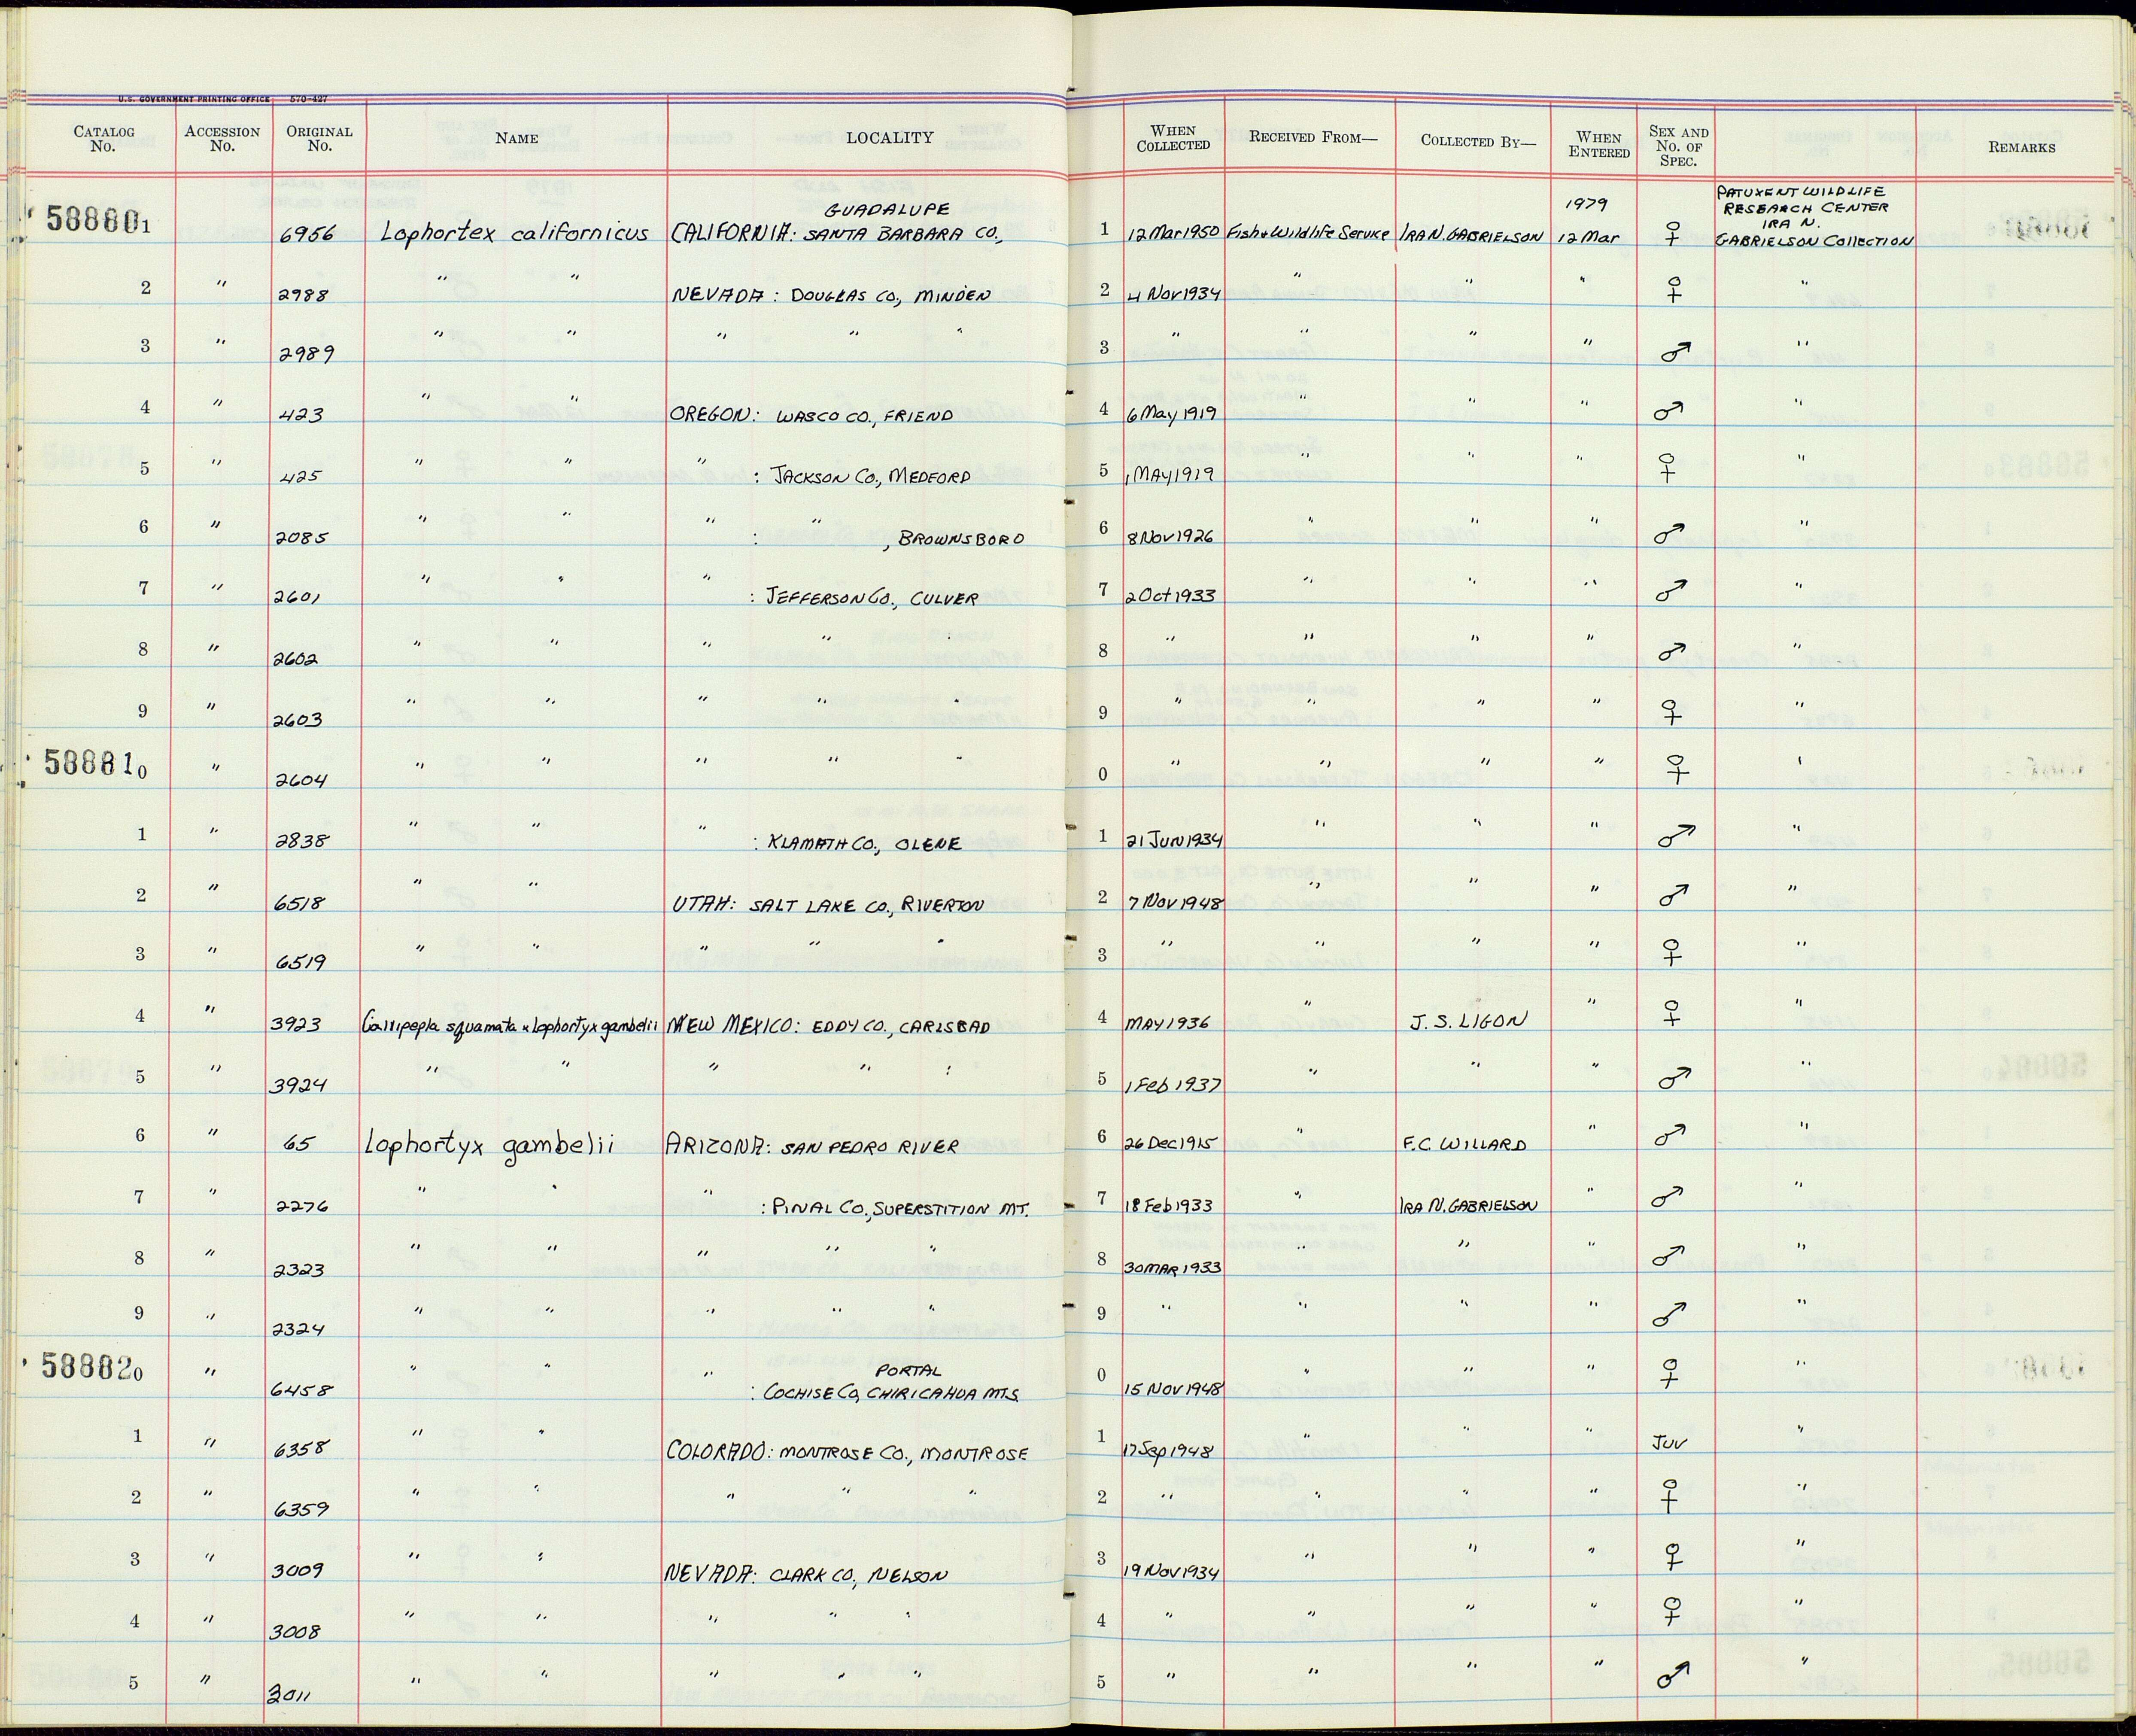 U.S. GOVERNMENT PRINTING OFFICE 570-427
CATALOG No. ACCESSION No. ORIGINAL No. NAME LOCALITY WHEN COLLECTED RECEIVED FROM— COLLECTED BY— WHEN ENTERED SEX AND No. OF SPEC. REMARKS
GUADALUPE 1979 PATUXENT WILDLIFE RESEARCH CENTER IRA N.
588801 6956 Lophortex californicus CALIFORNIA: SANTA BARBARA CO., 1 12 Mar 1950 Fish & Wildlife Service IRA N. GABRIELSON 12 Mar ♀ GABRIELSON Collection
2 " 2988 " " NEVADA: DOUGLAS CO., MINDEN 2 4 Nov 1934 " " " ♀ "
3 " 2989 " " " " " 3 " " " " ♂ "
4 " 423 " " OREGON: WASCO CO., FRIEND 4 6 May 1919 " " " ♂ "
5 " 425 " " " : JACKSON CO., MEDFORD 5 1 MAY 1919 " " " ♀ "
6 " 2085 " " " : " , BROWNSBORO 6 8 Nov 1926 " " " ♂ "
7 " 2601 " " " : JEFFERSON CO., CULVER 7 2 Oct 1933 " " " ♂ "
8 " 2602 " " " " " 8 " " " " ♂ "
9 " 2603 " " " " " 9 " " " " ♀ "
588810 " 2604 " " " " " 0 " " " " ♀ "
1 " 2838 " " " : KLAMATH CO., OLENE 1 21 JUN 1934 " " " ♂ "
2 " 6518 " " UTAH: SALT LAKE CO., RIVERTON 2 7 Nov 1948 " " " ♂ "
3 " 6519 " " " " " 3 " " " " ♀ "
4 " 3923 Callipepla squamata x Lophortyx gambelii NEW MEXICO: EDDY CO., CARLSBAD 4 MAY 1936 " J. S. LIGON " ♀ "
5 " 3924 " " " " " 5 1 Feb 1937 " " " ♂ "
6 " 65 Lophortyx gambelii ARIZONA: SAN PEDRO RIVER 6 26 Dec 1915 " F.C. WILLARD " ♂ "
7 " 2276 " " " : PINAL CO., SUPERSTITION MT. 7 18 Feb 1933 " IRA N. GABRIELSON " ♂ "
8 " 2323 " " " " " 8 30 MAR 1933 " " " ♂ "
9 " 2324 " " " " " 9 " " " " ♂ "
PORTAL
588820 " 6458 " " " : COCHISE CO, CHIRICAHUA MTS. 0 15 NOV 1948 " " " ♀ "
1 " 6358 " " COLORADO: MONTROSE CO., MONTROSE 1 17 Sep 1948 " " " JUV "
2 " 6359 " " " " " 2 " " " " ♀ "
3 " 3009 " " NEVADA: CLARK CO., NELSON 3 19 Nov 1934 " " " ♀ "
4 " 3008 " " " " " 4 " " " " ♀ "
5 " 3011 " " " " " 5 " " " " ♂ "